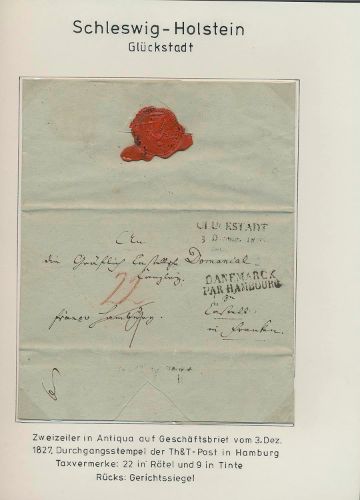 Schleswig-Holstein
Glückstadt
GLUCKSTADT
3
An
den Gräflich Castellsche Domanial
Canzley
DANEMARCK
PAR HAMBOURG
22
zu
franco Hamburg
Castell
in Franken.
Zweizeiler in Antiqua auf Geschäftsbrief vom 3.Dez.
1827, Durchgangsstempel der Th&T-Post in Hamburg
Taxvermerke: 22 in Rötel und 9 in Tinte
Rücks: Gerichtssiegel